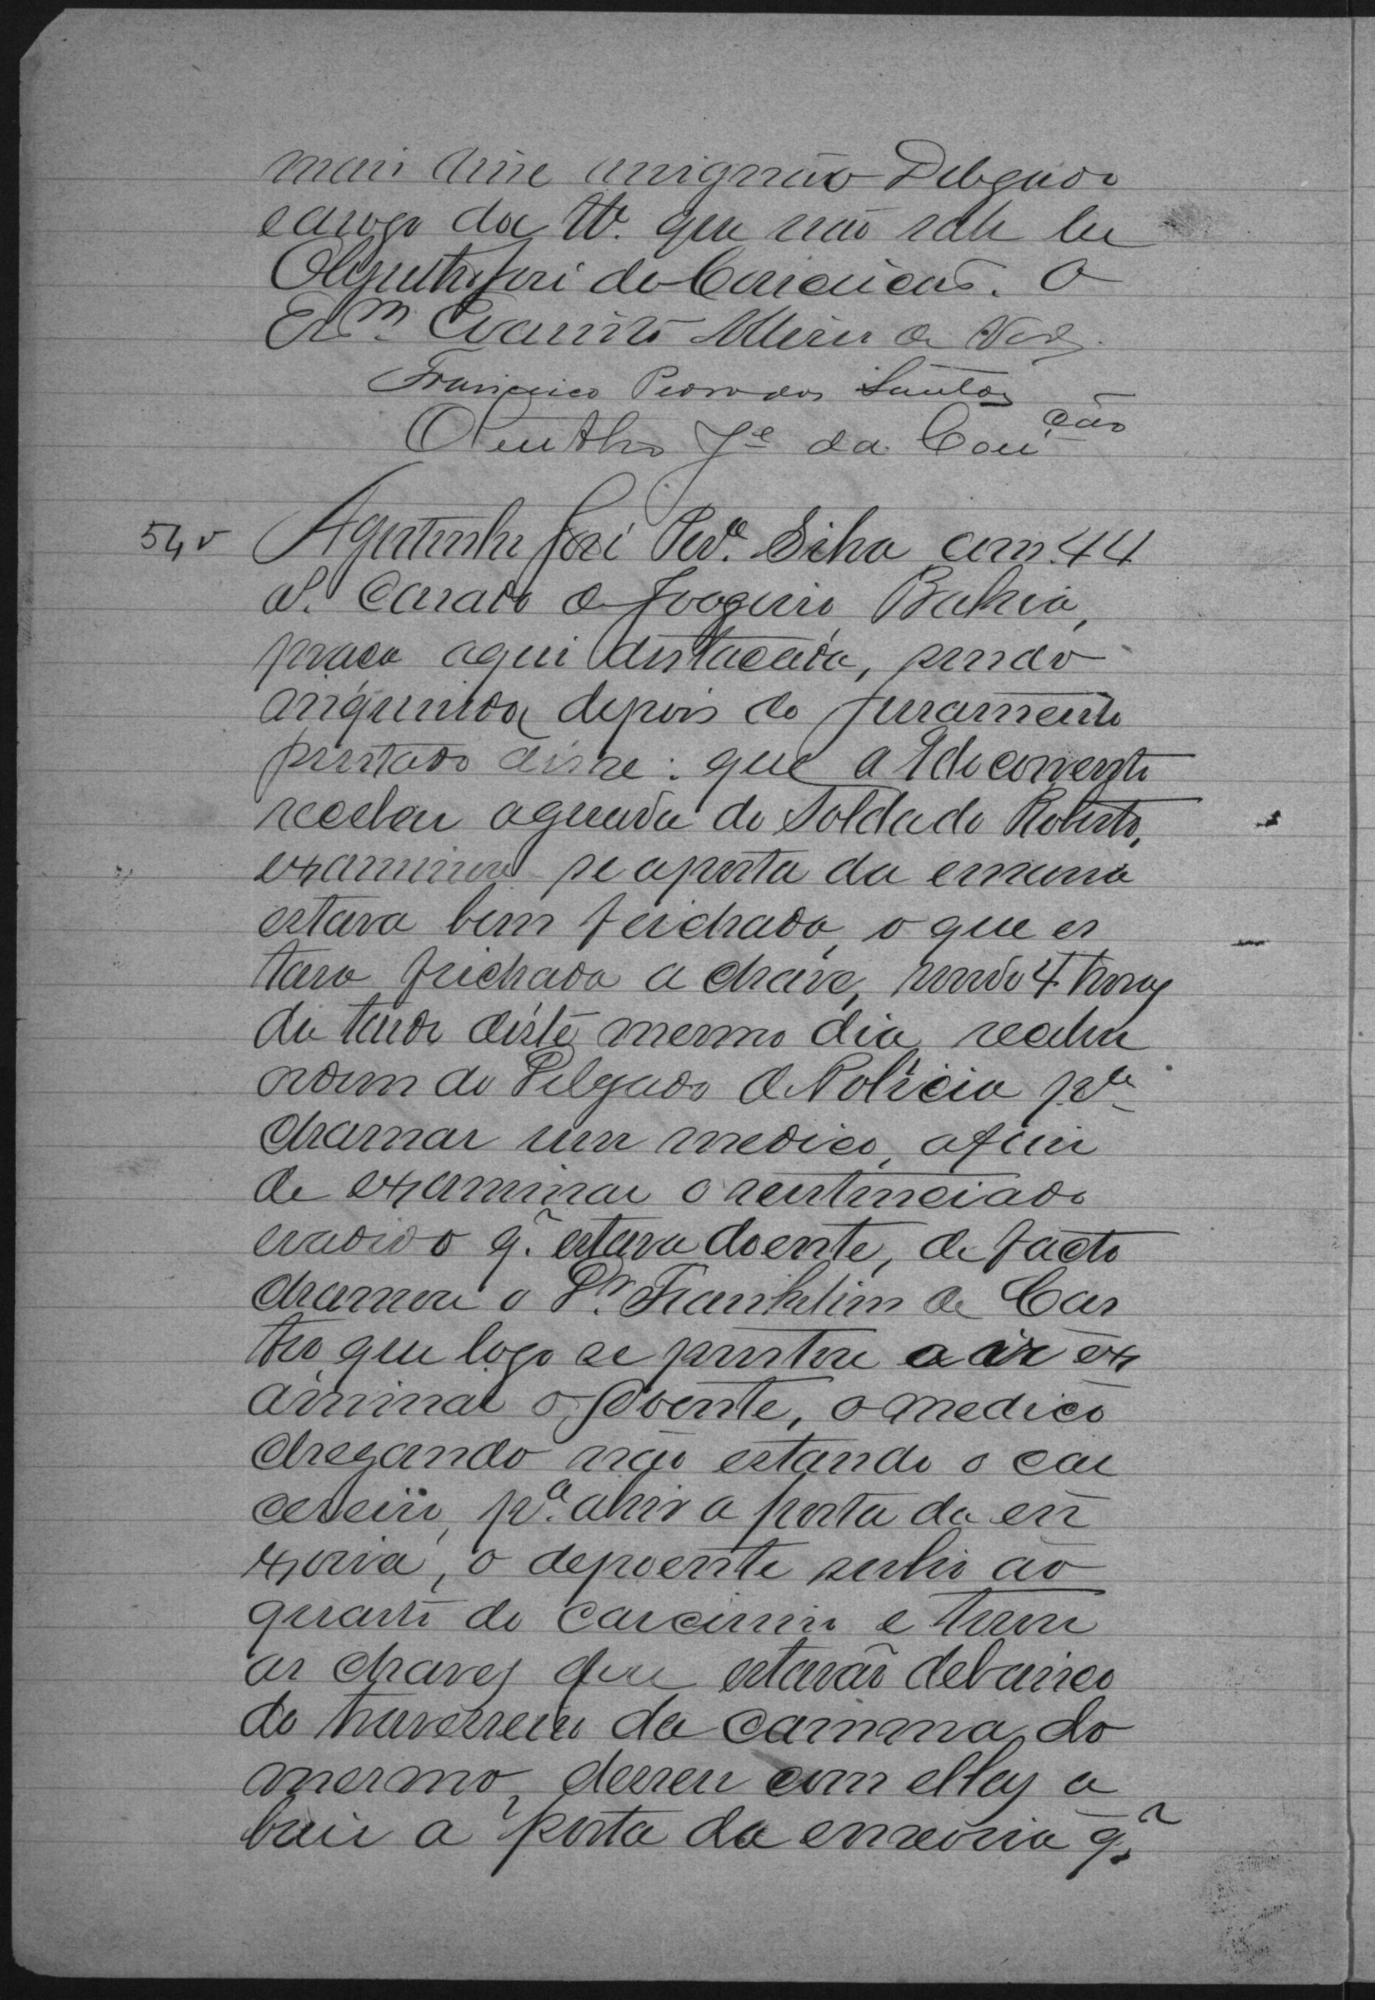 mais disse assignão Delegado
e arogo da tt. que não sabe ler
José da Conceicão. O
Esm. Evaristo de
Francisco Pedro dos Santos
Olintho Je. da Concão
54 v Agostinho José Per.a Silva com 44
a. casado de Joazeiro, Bahia,
praça aqui destacada, sendo
inquirido depois do juramento
prestado disse: que a 9 do corrente
recebeu aguarda do Soldado Roberto,
examinou se aporta da enxovia
estava bem feichada, o que es
tava feichada a chave, sendo 4 horas
da tarde d'iste mesmo dia recebeu
ordem do Delgado de Policia pa
chamar um medico, afim
de examinar o sentenciado
evadido q.~ estava doente, de facto
chamou o Dr. Franklim de Cas
tro que logo se prestou a ir ex
aminar o doente, o medico
chegando não estando o car
cereiro, p.a abrir a porta da en
xovia, o depoente subio ao
quarto do carcereiro e tirou
as chaves que estavão debaixo
do travesseiro da camma do
mesmo, desceu com ellas a
brir a porta da enxovia q.~